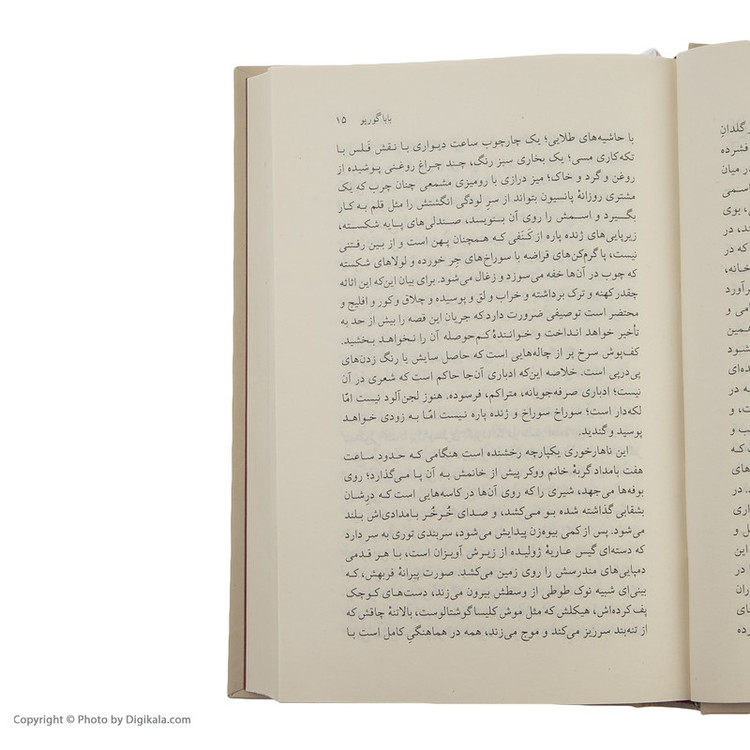 بابا گوریو ۱۵
با حاشیه‌های طلایی؛ یک چارچوب ساعت دیواری با نقش فَلس با
تکه‌کاری مسی؛ یک بخاری سبز رنگ، چند چراغ روغنی پوشیده از
روغن و گرد و خاک؛ میز درازی با رومیزی مشمعی چنان چرب که یک
مشتری روزانهٔ پانسیون بتواند از سرِ لودگی انگشتش را مثل قلم به کار
بگیرد و اسمش را روی آن بنویسد، صندلی‌های پایه شکسته،
زیرپایی‌های ژنده پاره از کَنَفی که همچنان پهن است و از بین رفتنی
نیست، پاگرم‌کن‌های قراضه با سوراخ‌های جِر خورده و لولاهای شکسته
که چوب در آن‌ها خفه می‌سوزد و زغال می‌شود. برای بیان این‌که این اثاثه
چقدر کهنه و ترک برداشته و خراب و لق و پوسیده و چلاق و کور و افلیج و
محتضر است توصیفی ضرورت دارد که جریان این قصه را بیش از حد به
تأخیر خواهد انداخت و خوانندهٔ کم‌حوصله آن را نخواهد بخشید.
کف‌پوش سرخ پر از چاله‌هایی است که حاصل سایش یا رنگ زدن‌های
پی‌درپی است. خلاصه این‌که ادباری آن‌جا حاکم است که شعری در آن
نیست؛ ادباری صرفه‌جویانه، متراکم، فرسوده. هنوز لجن‌آلود نیست امّا
لکه‌دار است؛ سوراخ سوراخ و ژنده پاره نیست امّا به زودی خواهد
پوسید و گندید.
این ناهارخوری یکپارچه رخشنده است هنگامی که حدود ساعت
هفت بامداد گربهٔ خانم ووکر پیش از خانمش به آن پا می‌گذارد؛ روی
بوفه‌ها می‌جهد، شیری را که روی آن‌ها در کاسه‌هایی است که درِشان
بشقابی گذاشته شده بو می‌کشد، و صدای خُرخُر بامدادی‌اش بلند
می‌شود. پس از کمی بیوه‌زن پیدایش می‌شود، سربندی توری به سر دارد
که دسته‌ای گیس عاریهٔ ژولیده از زیرش آویزان است، با هر قدمی
دمپایی‌های مندرسش را روی زمین می‌کشد. صورت پیرانهٔ فربهش، که
بینی‌ای شبیه نوک طوطی از وسطش بیرون می‌زند، دست‌های کوچک
پف‌کرده‌اش، هیکلش که مثل موش کلیسا گوشتالوست، بالاتنهٔ چاقش که
از تنه‌بند سرریز می‌کند و موج می‌زند، همه در هماهنگیِ کامل است با
گلدانِ
فشرده
در میان
اسمی
بوی
در
که در
خانه،
برآورد
امی و
همین
شود
ده‌ای
ه در
ت، و
ب و
ت که
در
اری
ل و
این
ا در
ران
های
رده
Copyright © Photo by Digikala.com